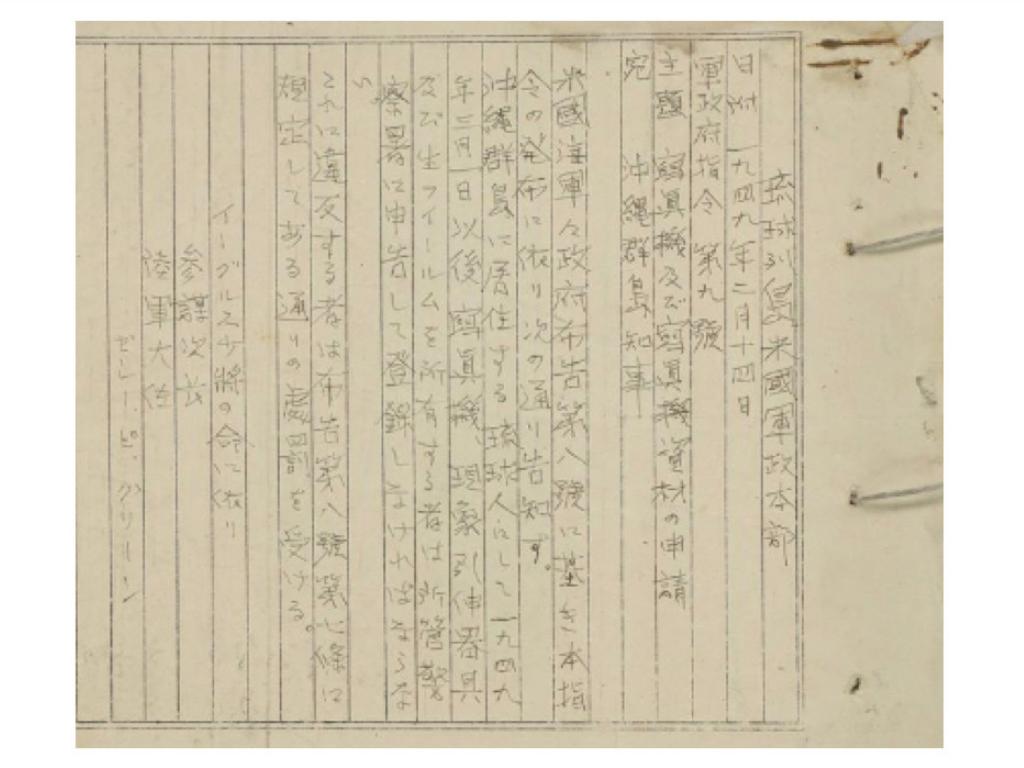 琉球列島米國軍政本部
日附 一九四九年二月十四日
軍政府指令 第九號
主題 寫眞機及び寫眞機資材の申請
宛 沖縄群島知事
米國海軍々政府布告第八號に基き本指
令の発布に依り次の通り告知す。
沖縄群島に居住する琉球人にして一九四九
年三月一日以後寫眞機、現象引伸器具
及び生フイールムを所有する者は所管警
察署に申告して登錄しなければならな
い。
これに違反する者は布告第八號第七條に
規定してある通りの處罰を受ける。
イーグルス少將の命に依り
参謀次長
陸軍大佐
ピ、グリーン